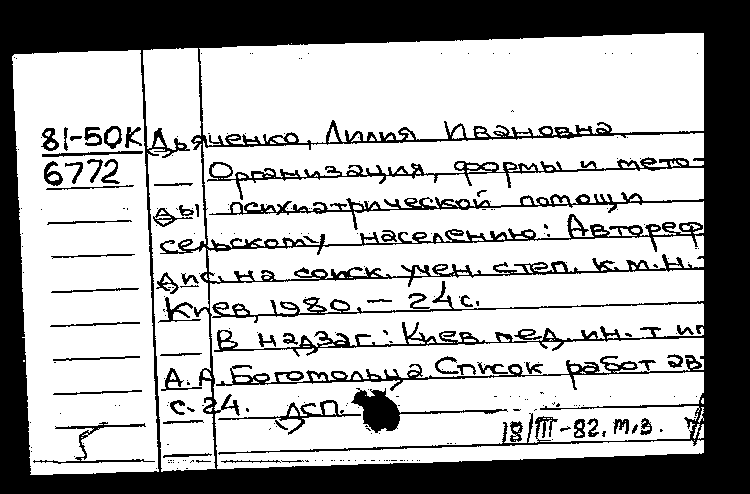 81-50К Дьяченко, Лилия Ивановна.
6772 Организация, формы и мето-
ды психиатрической помощи
сельскому населению: Автореф
дис. на соиск. учен. степ. к.м.н.-
Киев, 1980. — 24 с.
В надзаг.: Киев. мед. ин.-т им
А.А. Богомольца. Список работ ав
с. 24. ДСП.
18/III-82. т,з.